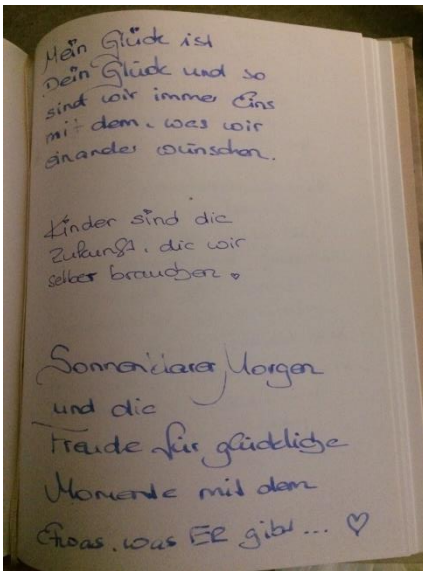 Mein Glück ist
Dein Glück und so
sind wir immer Eins
mit dem, was wir
einander wünschen.
Kinder sind die
Zukunft, die wir
selber brauchen.
Sonnenklarer Morgen
und die
Freude für glückliche
Momente mit dem
Etwas, was ER gibt... ♡